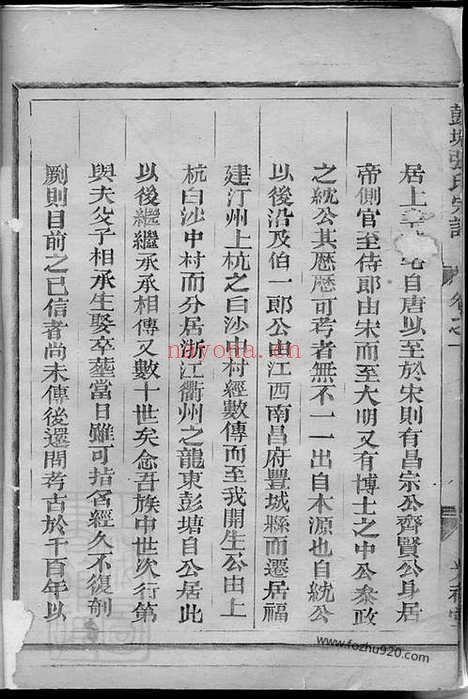 居上自唐以至於宋則有昌宗公齊賢公身居
帝側官至侍郎由宋而至大明又有博士之中公泰政
之統公其歷歷可考者無不一一出自本源也自統公
以後沿及伯一郎公由江西南昌府豐城縣而遷居福
建汀州上杭之白沙中村經數傳而至我開生公由上
杭白沙中村而分居浙江衢州之龍東彭塘自公居此
以後繼繼承承相傳又數十世矣念吾族中世次行第
與夫父子相承生娶卒葬當日雖可指名經久不復剞
劂則目前之已信者尚未傳後還問考古於千百年以
彭塘張氏宗譜
卷之一
nayona.cn
www.fozhu920.com